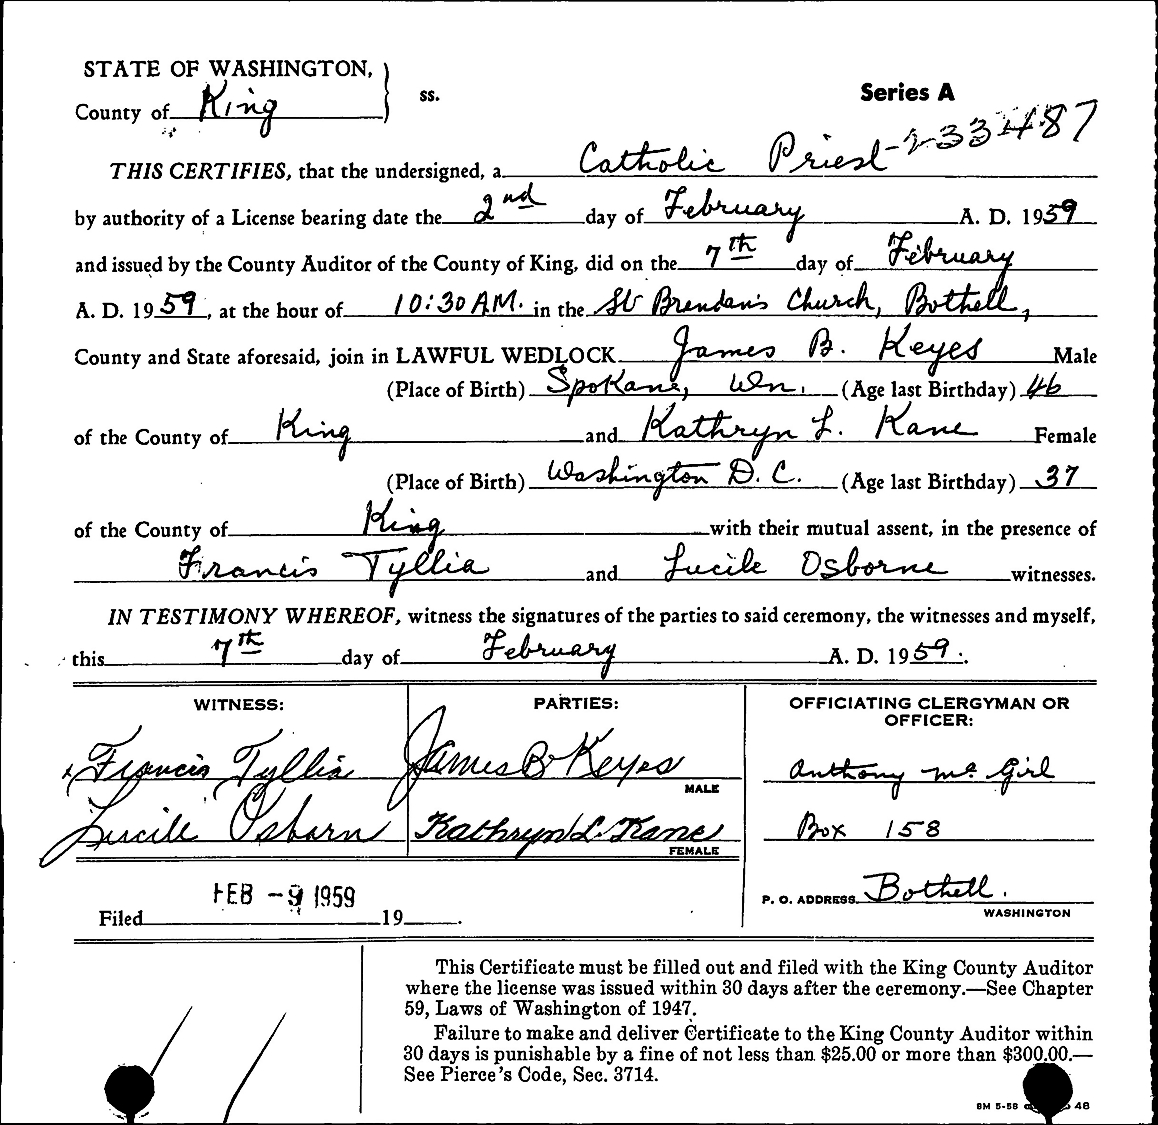 STATE OF WASHINGTON,
County of King ss.
Series A
233487
THIS CERTIFIES, that the undersigned, a Catholic Priest
by authority of a License bearing date the 2nd day of February A. D. 1959
and issued by the County Auditor of the County of King, did on the 7th day of February
A. D. 1959, at the hour of 10:30 A.M. in the St Brendan's Church, Bothell,
County and State aforesaid, join in LAWFUL WEDLOCK James B. Keyes Male
(Place of Birth) Spokane, Wn. (Age last Birthday) 46
of the County of King and Kathryn L. Kane Female
(Place of Birth) Washington D. C. (Age last Birthday) 37
of the County of King with their mutual assent, in the presence of
Francis Tyllia and Lucile Osborne witnesses.
IN TESTIMONY WHEREOF, witness the signatures of the parties to said ceremony, the witnesses and myself,
this 7th day of February A. D. 1959.
WITNESS:
x Francis Tyllia
Lucile Osborn
PARTIES:
James B Keyes
MALE
Kathryn L. Kane
FEMALE
OFFICIATING CLERGYMAN OR
OFFICER:
Anthony Mc Girl
Box 158
P. O. ADDRESS Bothell.
WASHINGTON
FEB -9 1959
Filed 19 .
This Certificate must be filled out and filed with the King County Auditor
where the license was issued within 30 days after the ceremony.—See Chapter
59, Laws of Washington of 1947.
Failure to make and deliver Certificate to the King County Auditor within
30 days is punishable by a fine of not less than $25.00 or more than $300.00.—
See Pierce's Code, Sec. 3714.
5-58 48